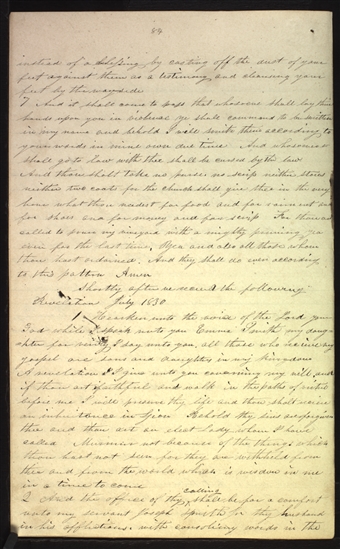 instead of a blessing by casting off the dust of your
feet against them as a testimony, and cleansing your
feet by the wayside
7 And it shall come to pass that whosoever shall lay their
hands upon you in violence ye shall command to be smitten
in my name and behold I will smite them according to
your words in mine own due time And whosoever
shall go to law with thee shall be cursed by the law
And thou shalt take no purse no scrip neither staves
neither two coats for the church shall give thee in the very
hour what thou needest for food and for raiment and
for shoes and for money and for scrip For thou art
called to prune my vineyard with a mighty pruning ye
even for the last time, Yea and also all those whom
thou hast ordained. And they shall do even according
to this pattern Amen
Shortly after we received the following
Revelation July 1830
1 Hearken unto the voice of the Lord your
God while I speak unto you Emma Smith my daug-
hter for verily I say unto you, all those who receive my
gospel are sons and daughters in my kingdom
A revelation I give unto you concerning my will and
if thou art faithful and walk in the paths of virtue
before me I will preserve thy life and thou shalt receive
an inheritance in Zion Behold thy sins are forgiven
thee and thou art an elect Lady whom I have
called Murmur not because of the things which
thou hast not seen for they are withheld from
thee and from the world which is wisdom in me
in a time to come
2 And the office of thy calling shall be for a comfort
unto my servant Joseph Smith Jr thy husband
in his afflictions with consoling words in the